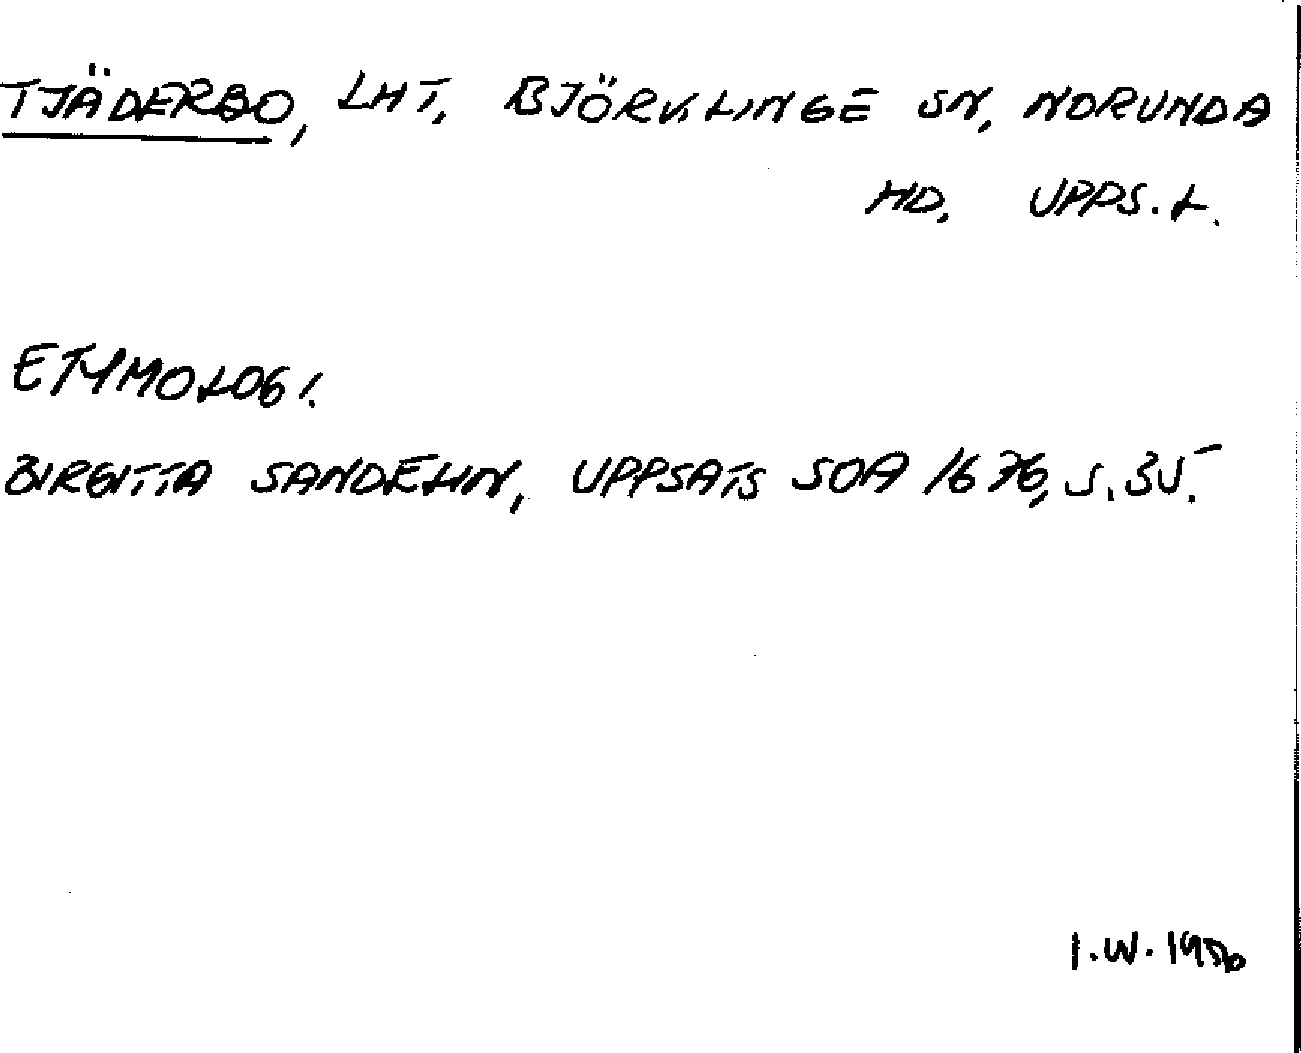 TJÄDERBO, LHT, BJÖRKLINGE SN, NORUNDA
HD, UPPS.L.
ETYMOLOGI.
BIRGITTA SANDELIN, UPPSATS SOA 1676, S.35.
I.W. 1986